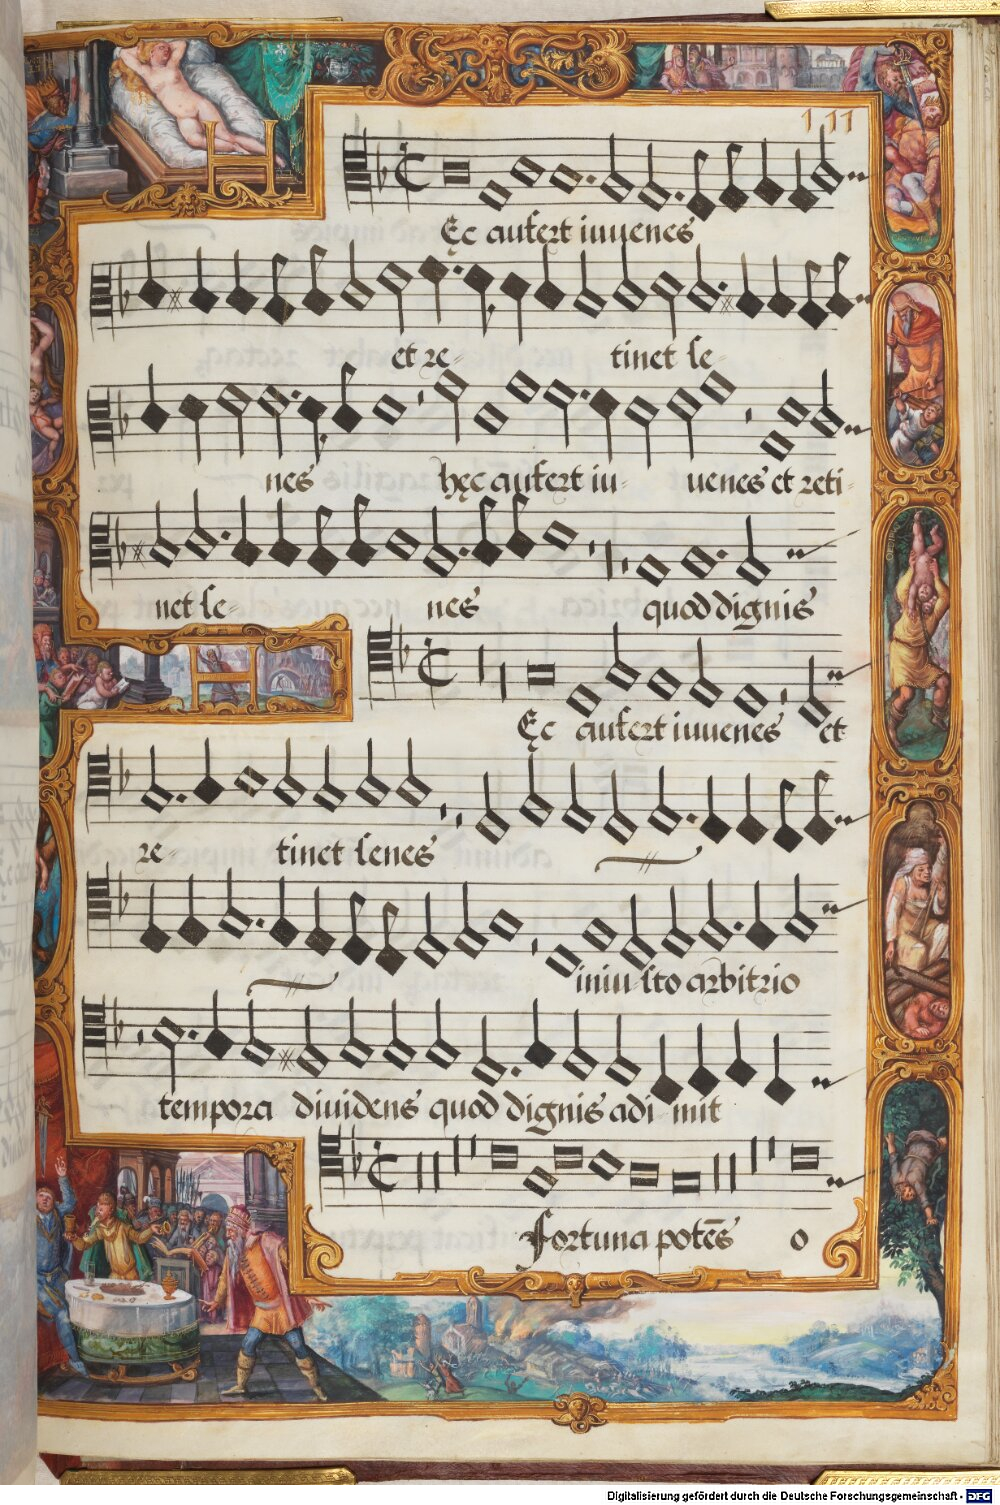 111
H Ęc aufert iuuenes
et re- tinet le-
nes hęc aufert iu- uenes et reti-
net le- nes quod dignis
H Ęc aufert iuuenes et
re- tinet lenes
iniusto arbitrio
tempora diuidens quod dignis adi- mit
Fortuna potēs o
Digitalisierung gefördert durch die Deutsche Forschungsgemeinschaft - DFG